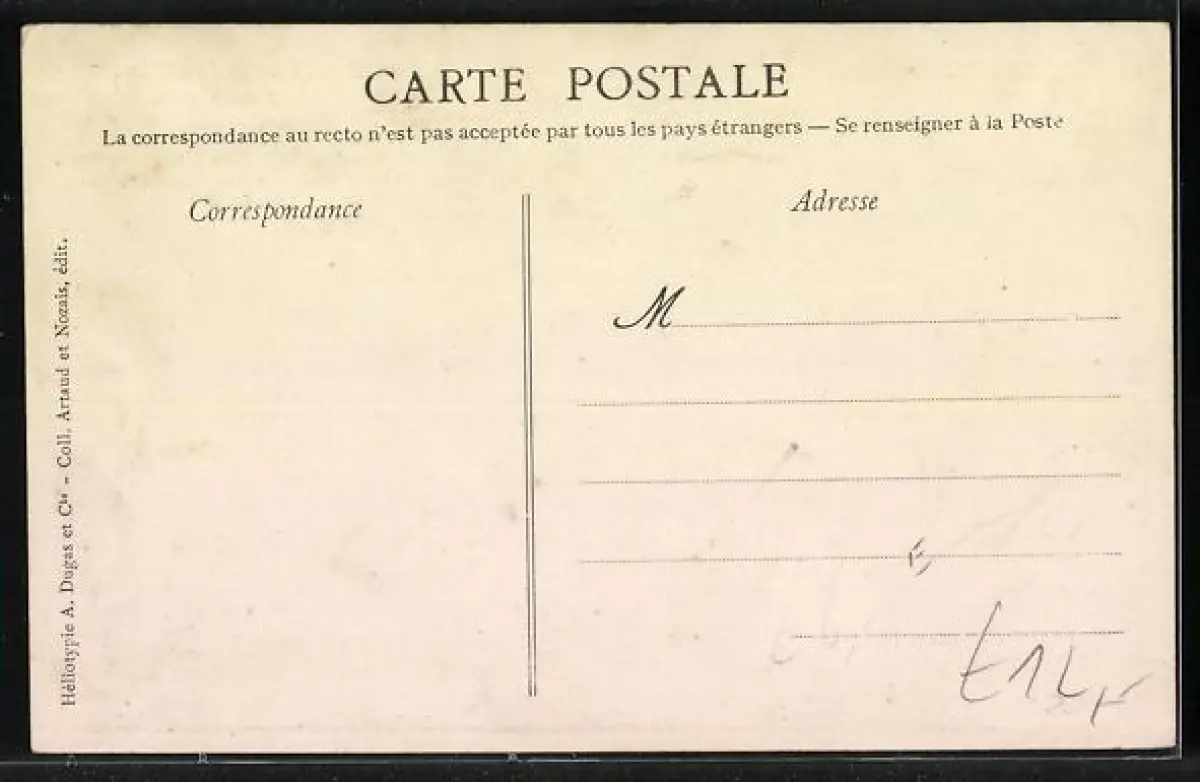 CARTE POSTALE
La correspondance au recto n'est pas acceptée par tous les pays étrangers — Se renseigner à la Poste
Correspondance
Adresse
M
Héliotypie A. Dugas et Cie - Coll. Artaud et Nozais, édit.